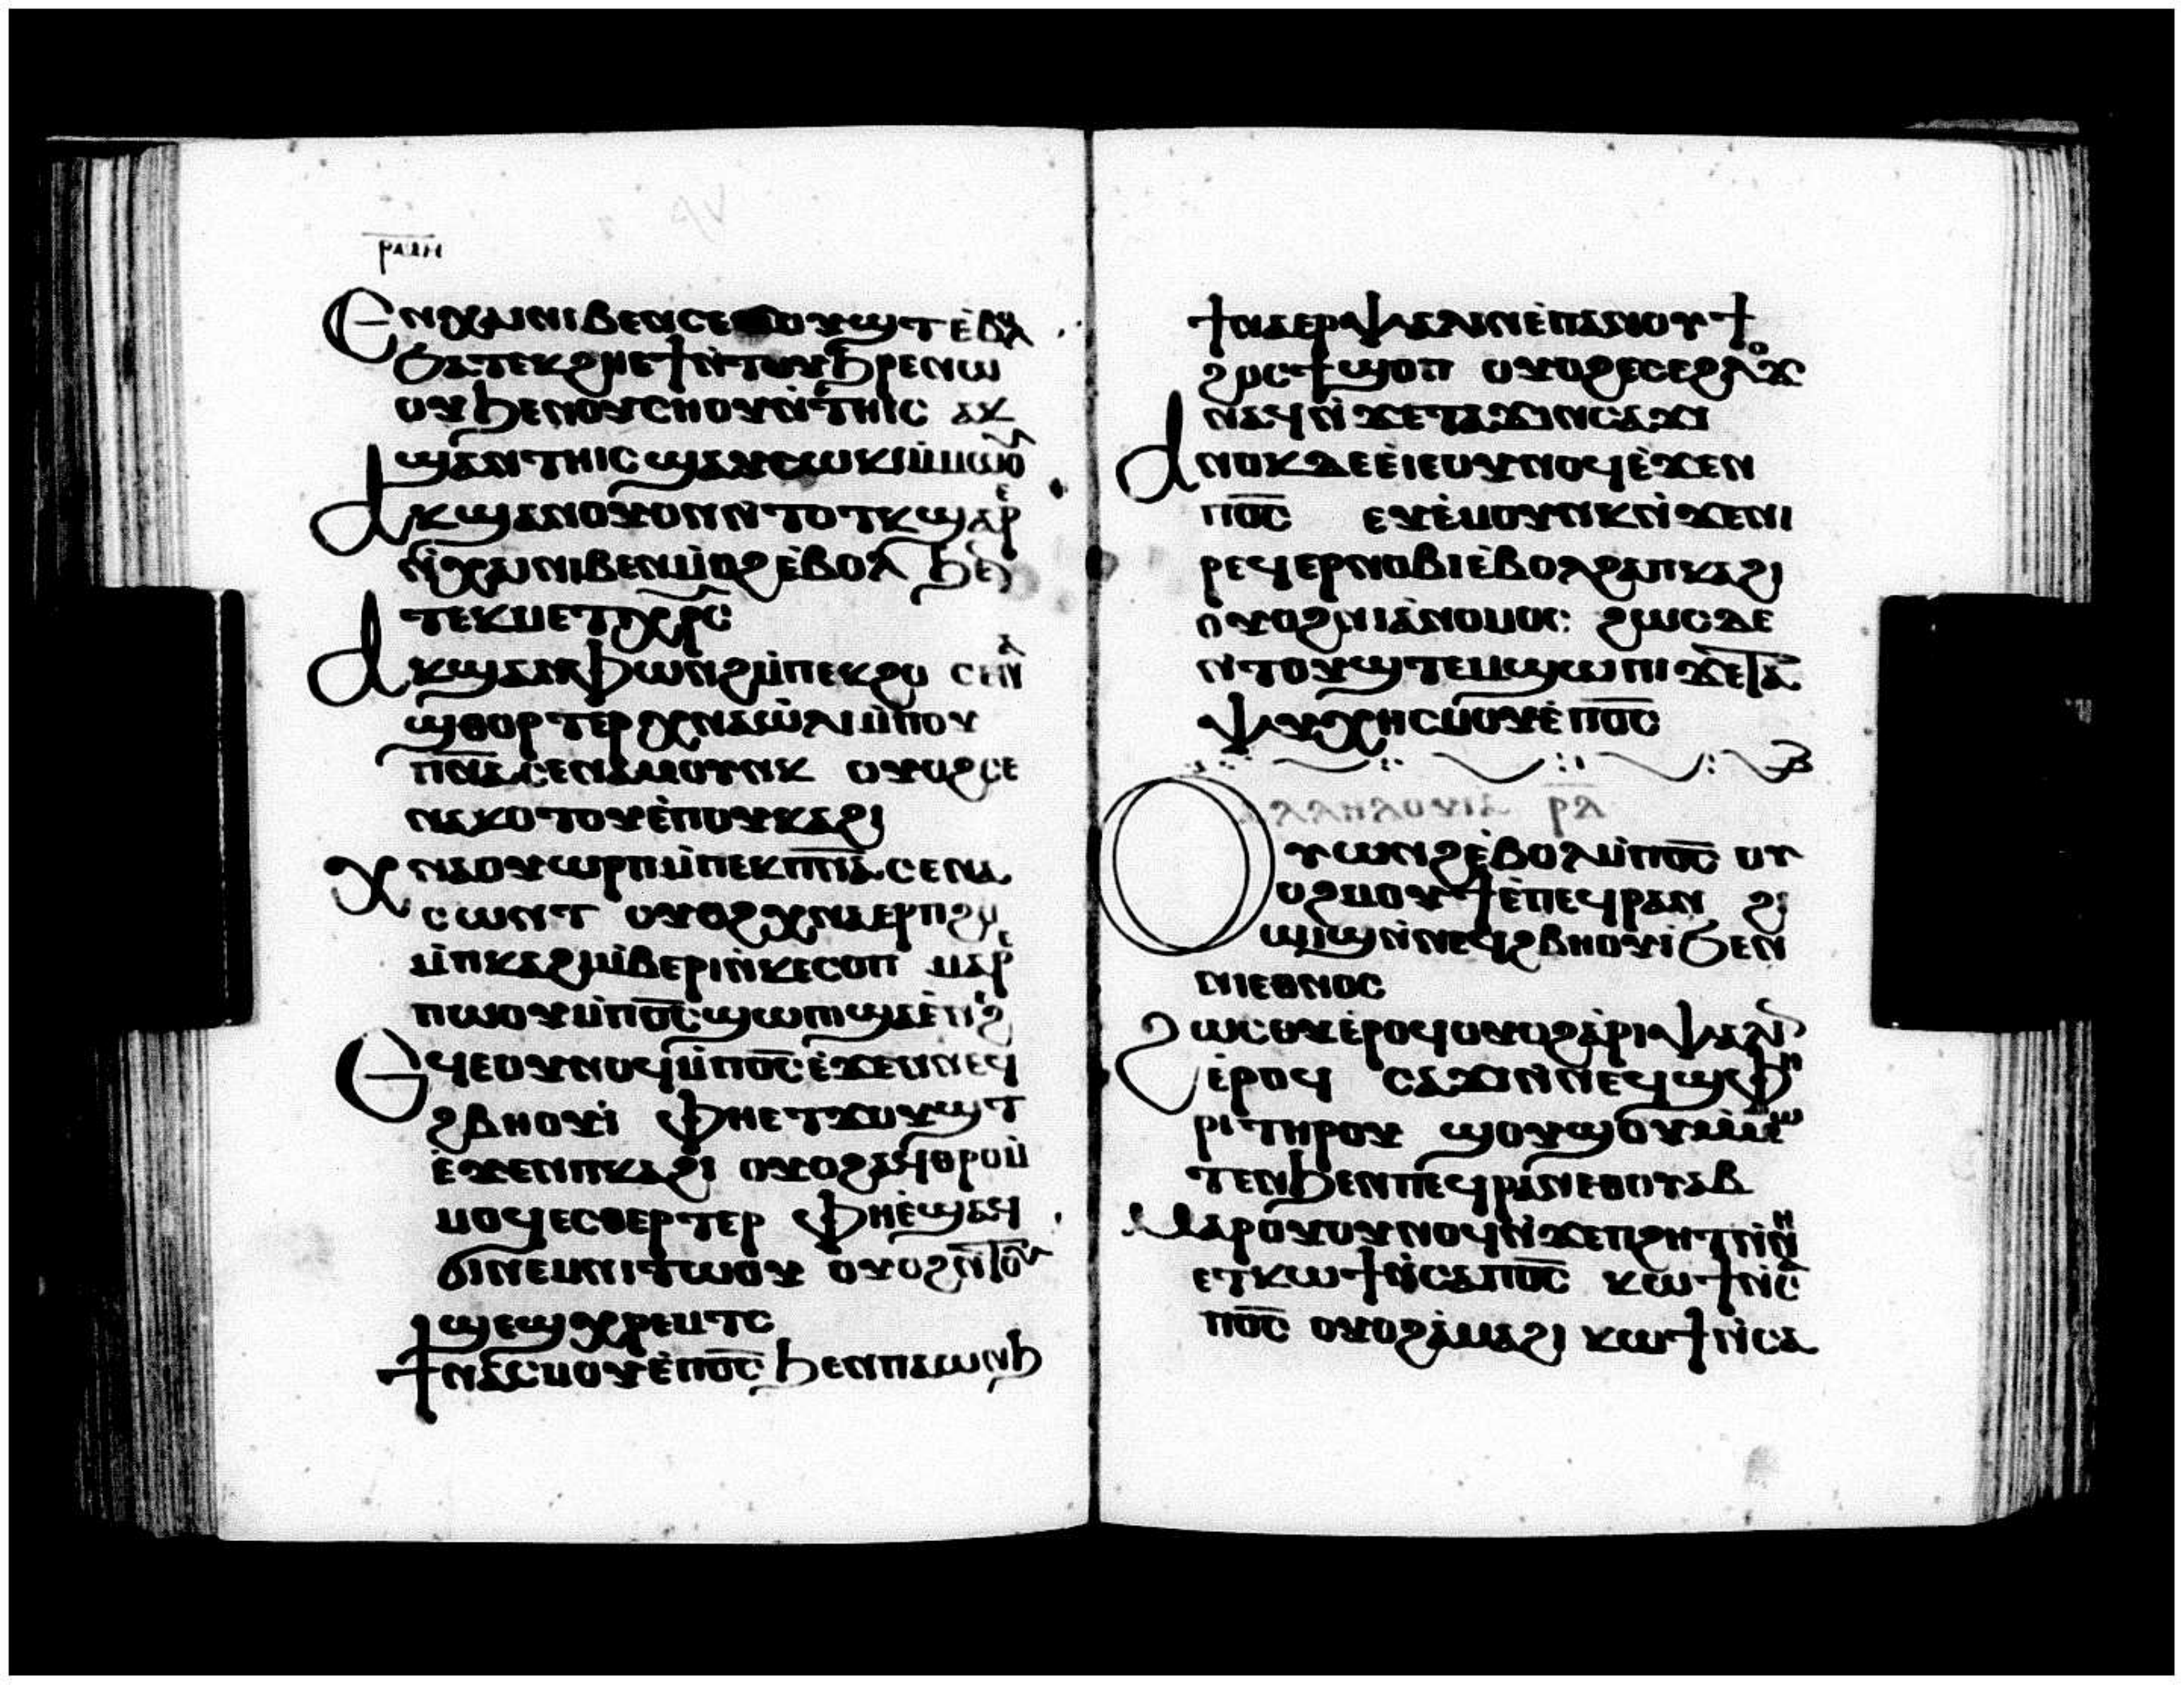 ⲣⲙⲏ
Ⲉⲛⲭⲁⲓ ⲛⲓⲃⲉⲛ ⲥⲉ ⲟⲩϣⲧ ⲉ̀ⲃⲟⲗ
ϧⲁⲧⲉⲕϩⲏ ⲉϯ ⲛ̀ⲧⲟⲩϧⲣⲉ ⲛⲱ
ⲟⲩ ϧⲉⲛⲟⲩⲥⲏⲟⲩ ⲛ̀ⲧⲏⲓⲥ ⲁⲕ
ϣⲁⲛⲧⲏⲓⲥ ϣⲁⲩⲥⲱⲕⲓ ⲙ̀ⲙⲱⲟⲩ
Ⲁⲕϣⲁⲛⲟⲩⲱⲛ ⲛ̀ⲧⲟⲧⲕ ϣⲁⲣⲉ
ⲛ̀ⲭⲁⲓ ⲛⲓⲃⲉⲛ ⲙⲟϩ ⲉ̀ⲃⲟⲗ ϧⲉⲛ
ⲧⲉⲕⲙⲉⲧⲭⲣⲥ
Ⲁⲕϣⲁⲛⲫⲱⲛϩ ⲙ̀ⲡⲉⲕϩⲟ ⲥⲉⲛⲁ
ϣⲑⲟⲣⲧⲉⲣ ⲭⲛⲁⲱ̀ⲗⲓ ⲙ̀ⲡⲟⲩ
ⲡⲛⲁ ⲥⲉⲛⲁⲙⲟⲩⲛⲕ ⲟⲩⲟϩ ⲥⲉ
ⲛⲁⲕⲟⲧⲟⲩ ⲉ̀ⲡⲟⲩⲕⲁϩⲓ
Ⲭⲛⲁⲟⲩⲱⲣⲡ ⲙ̀ⲡⲉⲕⲡⲛⲁ ⲥⲉⲛⲁ
ⲥⲱⲛⲧ ⲟⲩⲟϩ ⲭⲛⲁⲉⲣⲡϩⲟ
ⲙ̀ⲡⲕⲁϩⲓ ⲙ̀ⲃⲉⲣⲓ ⲛ̀ⲕⲉⲥⲟⲡ ⲙⲁⲣⲉ
ⲡⲱⲟⲩ ⲙ̀ⲡⲟ̅ⲥ̅ ϣⲱⲡⲓ ϣⲁⲉ̀ⲛⲉϩ
Ⲉϥⲉⲟⲩⲛⲟϥ ⲙ̀ⲡⲟ̅ⲥ̅ ⲉ̀ϫⲉⲛ ⲛⲉϥ
ϩⲃⲏⲟⲩⲓ̀ ⲫⲏⲉⲧϫⲟⲩϣⲧ
ⲉ̀ϫⲉⲛ ⲡⲕⲁϩⲓ ⲟⲩⲟϩ ⲁϥⲑⲣⲟⲙ̀
ⲙⲟϥ ⲉⲥⲑⲉⲣⲧⲉⲣ ⲫⲏⲉ̀ϣⲁϥ
ϭⲓⲛⲉⲙ ⲛⲓⲧⲱⲟⲩ ⲟⲩⲟϩ ⲛ̀ⲧⲟⲩ
ϣⲉϣⲭⲣⲉⲙⲧⲥ
Ϯⲛⲁⲥⲙⲟⲩ ⲉ̀ⲡⲟ̅ⲥ̅ ϧⲉⲛ ⲡⲁⲱⲛϧ
ϯⲛⲁⲉⲣⲯⲁⲗⲓⲛ ⲉ̀ⲡⲁⲛⲟⲩϯ
ϩⲟⲥ ϯϣⲟⲡ ⲟⲩⲟϩ ⲉⲥⲉϩⲗⲟϫ
ⲛⲁϥ ⲛ̀ϫⲉ ⲧⲁϫⲓⲛⲥⲁϫⲓ
Ⲁⲛⲟⲕ ⲇⲉ ⲉⲓⲉⲟⲩⲛⲟϥ ⲉ̀ϫⲉⲛ
ⲡⲟ̅ⲥ̅ ⲉⲩⲉ̀ⲙⲟⲩⲛⲕ ⲛ̀ϫⲉ ⲛⲓ
ⲣⲉϥⲉⲣⲛⲟⲃⲓ ⲉ̀ⲃⲟⲗ ϩⲁ ⲡⲕⲁϩⲓ
ⲟⲩⲟϩ ⲛⲓⲁ̀ⲛⲟⲙⲟⲥ: ϩⲱⲥⲇⲉ
ⲛ̀ⲧⲟⲩϣⲧⲉⲙϣⲱⲡⲓ ϫⲉ ⲧⲁ
ⲯⲩⲭⲏ ⲥⲙⲟⲩ ⲉ̀ⲡⲟ̅ⲥ̅
ⲁⲗⲗⲏⲗⲟⲩⲓⲁ ⲣ̅ⲇ̅
Ⲟⲩⲱⲛϩ ⲉ̀ⲃⲟⲗ ⲙ̀ⲡⲟ̅ⲥ̅ ⲟⲩ
ⲟϩ ⲙⲟⲩϯ ⲉ̀ⲡⲉϥⲣⲁⲛ ϩⲓ
ϣⲓϣ ⲛ̀ⲛⲉϥϩⲃⲏⲟⲩⲓ̀ ϧⲉⲛ
ⲛⲓⲉⲑⲛⲟⲥ
Ϩⲱⲥ ⲟⲩ ⲉ̀ⲣⲟϥ ⲟⲩⲟϩ ⲁ̀ⲣⲓⲯⲁⲗⲓⲛ
ⲉ̀ⲣⲟϥ ⲥⲁϫⲓ ⲛ̀ⲛⲉϥϣⲫⲏ
ⲣⲓ ⲧⲏⲣⲟⲩ ϣⲟⲩϣⲟⲩ ⲙ̀ⲙⲱ
ⲧⲉⲛ ϧⲉⲛ ⲡⲉϥⲣⲁⲛ ⲉⲑⲟⲩⲁⲃ
Ⲙⲁⲣⲟⲩⲟⲩⲛⲟϥ ⲛ̀ϫⲉ ⲡϩⲏⲧ ⲛ̀ⲛⲏ
ⲉⲧⲕⲱϯ ⲛ̀ⲥⲁ ⲡⲟ̅ⲥ̅ ⲕⲱϯ ⲛ̀ⲥⲁ
ⲡⲟ̅ⲥ̅ ⲟⲩⲟϩ ⲁ̀ⲙⲁϩⲓ ⲕⲱϯ ⲛ̀ⲥⲁ